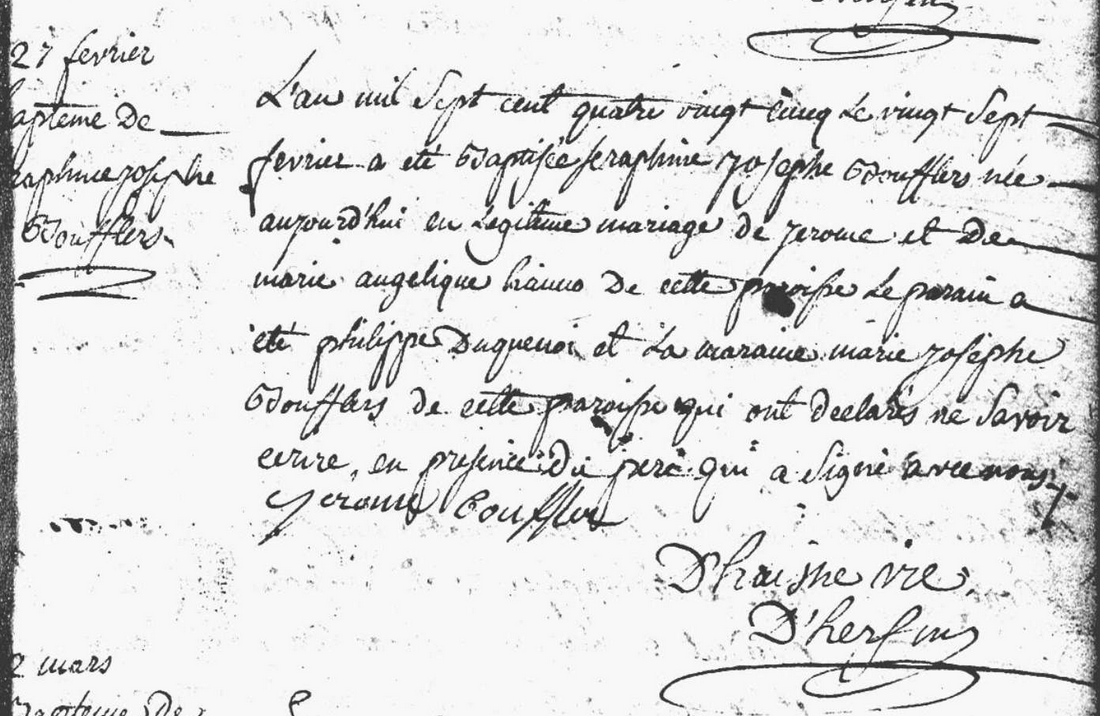 27 fevrier
aptême de
raphine josephe
Boufflers
L'an mil Sept cent quatre vingt Cinq Le vingt Sept
fevrier a eté Baptisée seraphine josephe Boufflers née
aujourd'hui en Legitime mariage de jerome et De
marie angelique hanno de cette paroisse Le parain a
eté philippe Duquenoi et La maraine marie josephe
Boufflers de cette paroisse qui ont declarés ne Savoir
ecrire, en presence du pere qui a Signé avec nous
jerome Boufflers
D'haisne vic
D'hersin
2 mars
Bapteme De